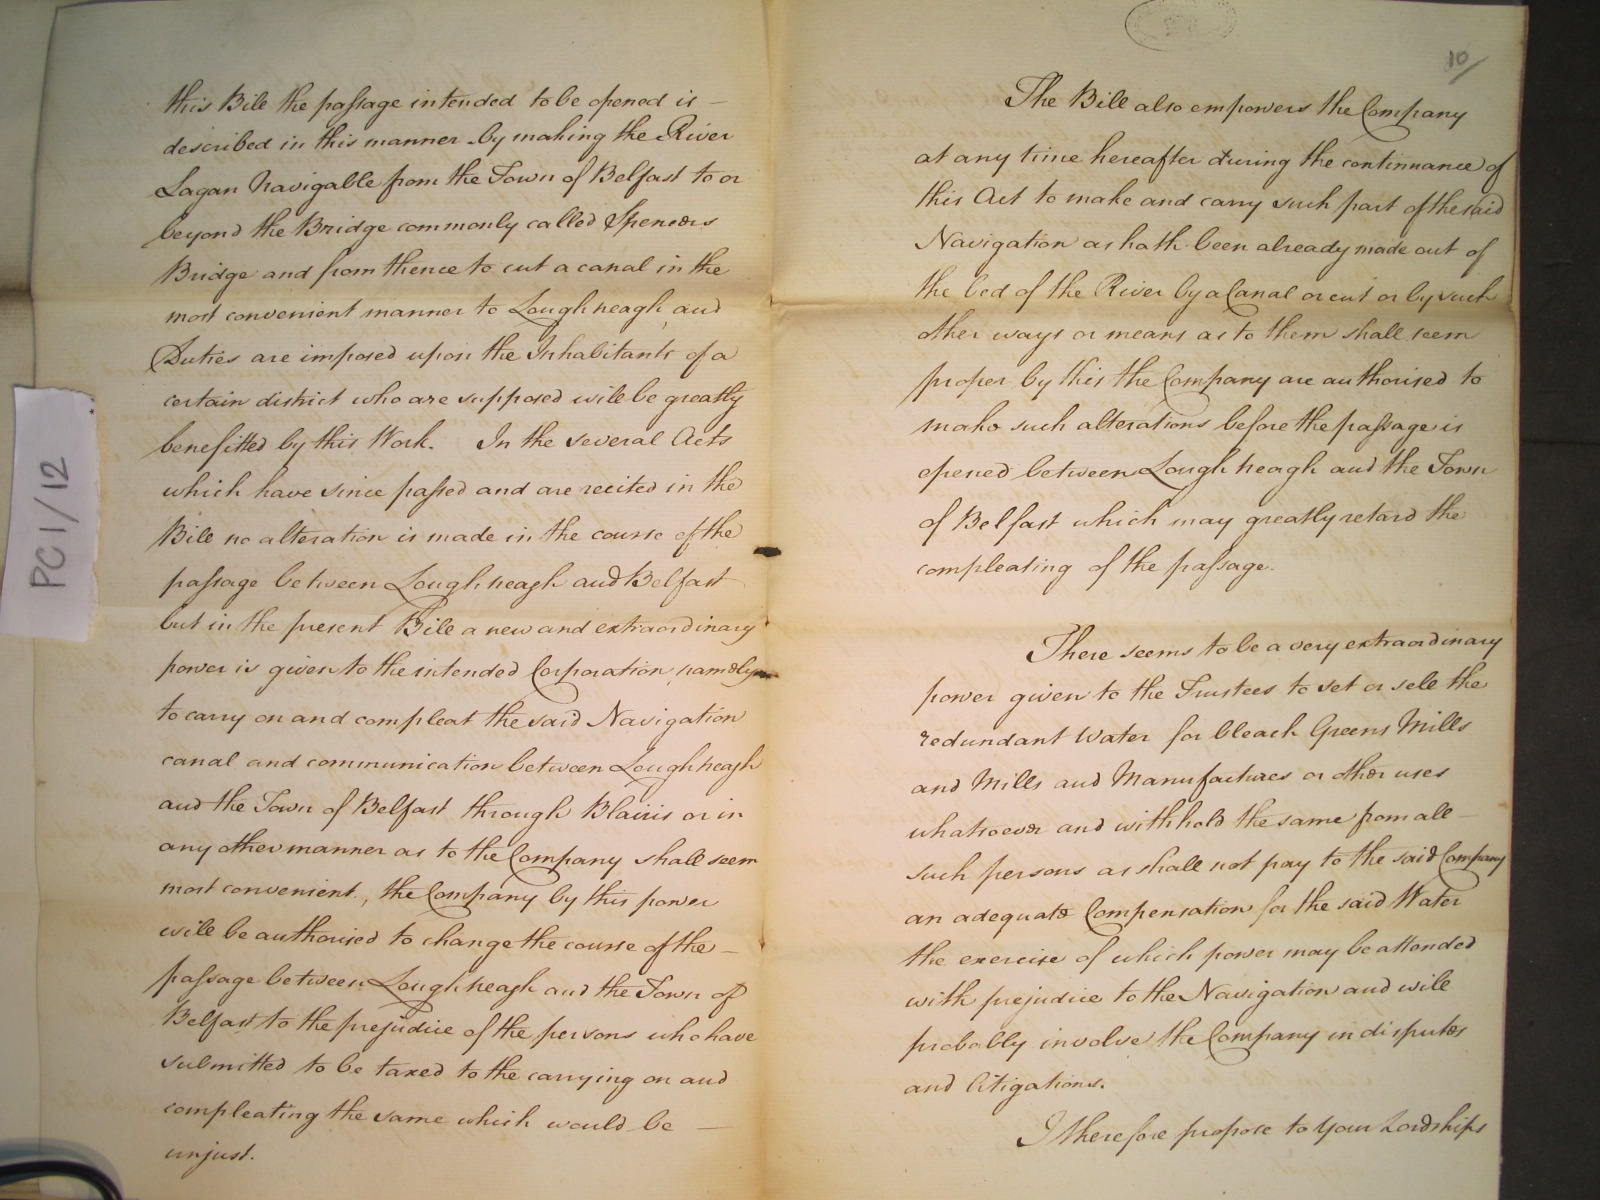 this Bill the passage intended to be opened is –
described in this manner by making the River
Lagan Navigable from the Town of Belfast to or
beyond the Bridge commonly called Spencers
Bridge and from thence to cut a canal in the
most convenient manner to Lough neagh, and
Duties are imposed upon the Inhabitants of a
certain district who are supposed will be greatly
benefitted by this Work. In the several Acts
which have since passed and are recited in the
Bill no alteration is made in the course of the
passage between Lough neagh and Belfast
but in the present Bill a new and extraordinary
power is given to the intended Corporation, namely
to carry on and compleat the said Navigation
canal and communication between Lough neagh
and the Town of Belfast through Blairis or in
any other manner as to the Company shall seem
most convenient, the Company by this power
will be authorised to change the course of the –
passage between Lough neagh and the Town of
Belfast to the prejudice of the persons who have
submitted to be taxed to the carrying on and
compleating the same which would be –
unjust.
PC 1/12
10/
The Bill also empowers the Company
at any time hereafter during the continuance of
this Act to make and carry such part of the said
Navigation as hath been already made out of
the bed of the River by a Canal or cut or by such
other ways or means as to them shall seem
proper by this the Company are authorised to
make such alterations before the passage is
opened between Lough neagh and the Town
of Belfast which may greatly retard the
compleating of the passage.
There seems to be a very extraordinary
power given to the Trustees to set or sell the
redundant Water for bleach Greens Mills
and Mills and Manufactures or other uses
whatsoever and withhold the same from all –
such persons as shall not pay to the said Company
an adequate Compensation for the said Water
the exercise of which power may be attended
with prejudice to the Navigation and will
probably involve the Company in disputes
and litigations.
I therefore propose to your Lordships